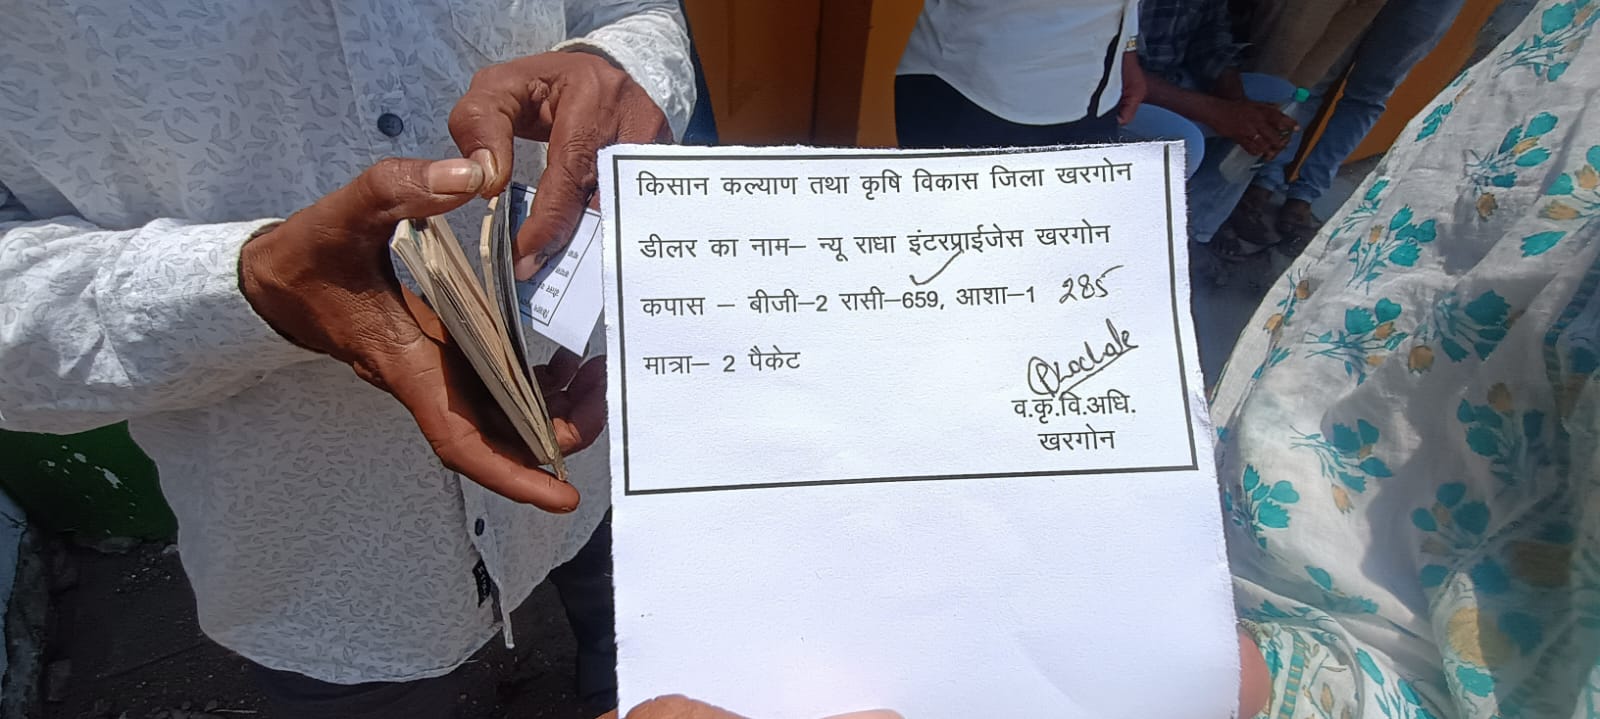 किसान कल्याण तथा कृषि विकास जिला खरगोन
डीलर का नाम– न्यू राधा इंटरप्राईजेस खरगोन
कपास – बीजी–2 रासी–659, आशा–1 285
मात्रा– 2 पैकेट
व.कृ.वि.अधि.
खरगोन